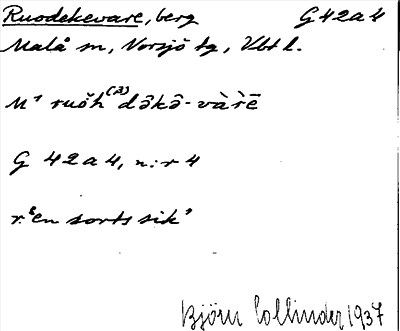 Ruodekevare, berg G 42 a 4
Malå sn, Norsjö tg, Vbt l.
M¹ ruŏh⁽ᵈ⁾dȃkȃ-vàr̀ē
G 42 a 4, n:r 4
r. "en sorts sik"
Björn Collinder 1937